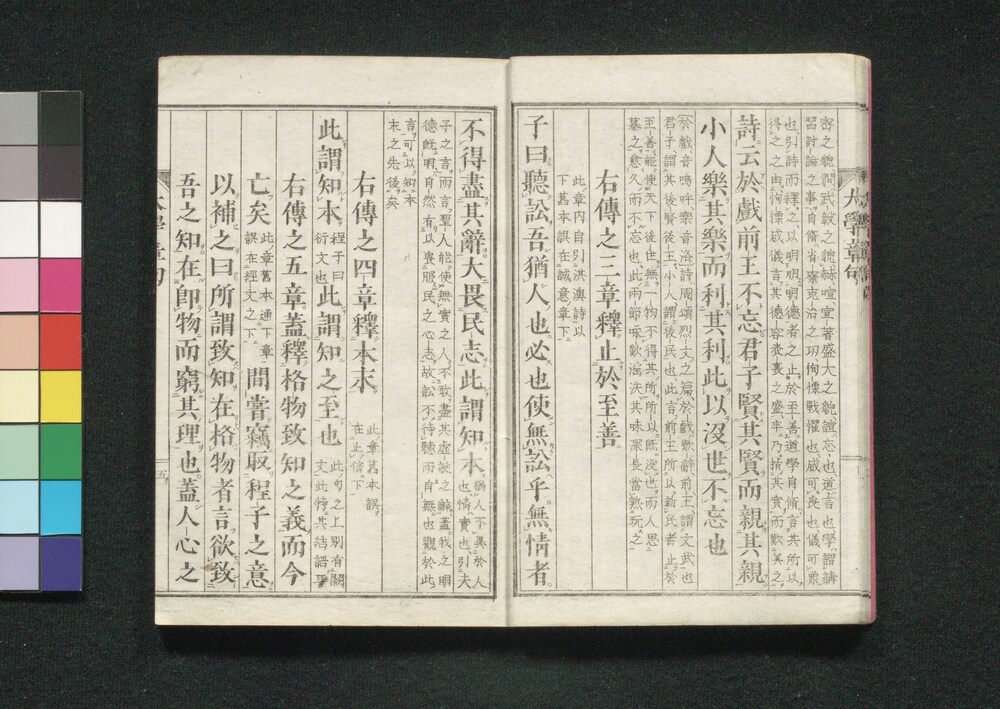 大學章句
密之貌僩武毅之貌赫喧宣著盛大之貌諠忘也道言也學謂講
習討論之事自脩省察克治之功恂慄戰懼也威可畏也儀可象
也引詩而釋之以明明明德者之止於至善道學自脩言其所以
得之之由恂慄威儀言其德容表裏之盛卒乃指其實而歎美之
詩云於戲前王不忘君子賢其賢而親其親
小人樂其樂而利其利此以沒世不忘也
於戲音嗚呼樂音洛詩周頌烈文之篇於戲歎辭前王謂文武也
君子謂其後賢後王小人謂後民也此言前王所以新民者止於
至善能使天下後世無一物不得其所所以既沒世而人思
慕之愈久而不忘也此兩節咏歎淫泆其味深長當熟玩之
右傳之三章釋止於至善
此章內自引淇澳詩以
下舊本誤在誠意章下
子曰聽訟吾猶人也必也使無訟乎無情者
不得盡其辭大畏民志此謂知本猶人不異於人
也情實也引夫
子之言而言聖人能使無實之人不敢盡其虛誕之辭蓋我之明
德既明自然有以畏服民之心志故訟不待聽而自無也觀於此
言可以知本
末之先後矣
右傳之四章釋本末此章舊本誤
在止信下
此謂知本程子曰
衍文也此謂知之至也此句之上別有闕
文此特其結語耳
右傳之五章蓋釋格物致知之義而今
亡矣此章舊本通下章
誤在經文之下間嘗竊取程子之意
以補之曰所謂致知在格物者言欲致
吾之知在卽物而窮其理也蓋人心之
五